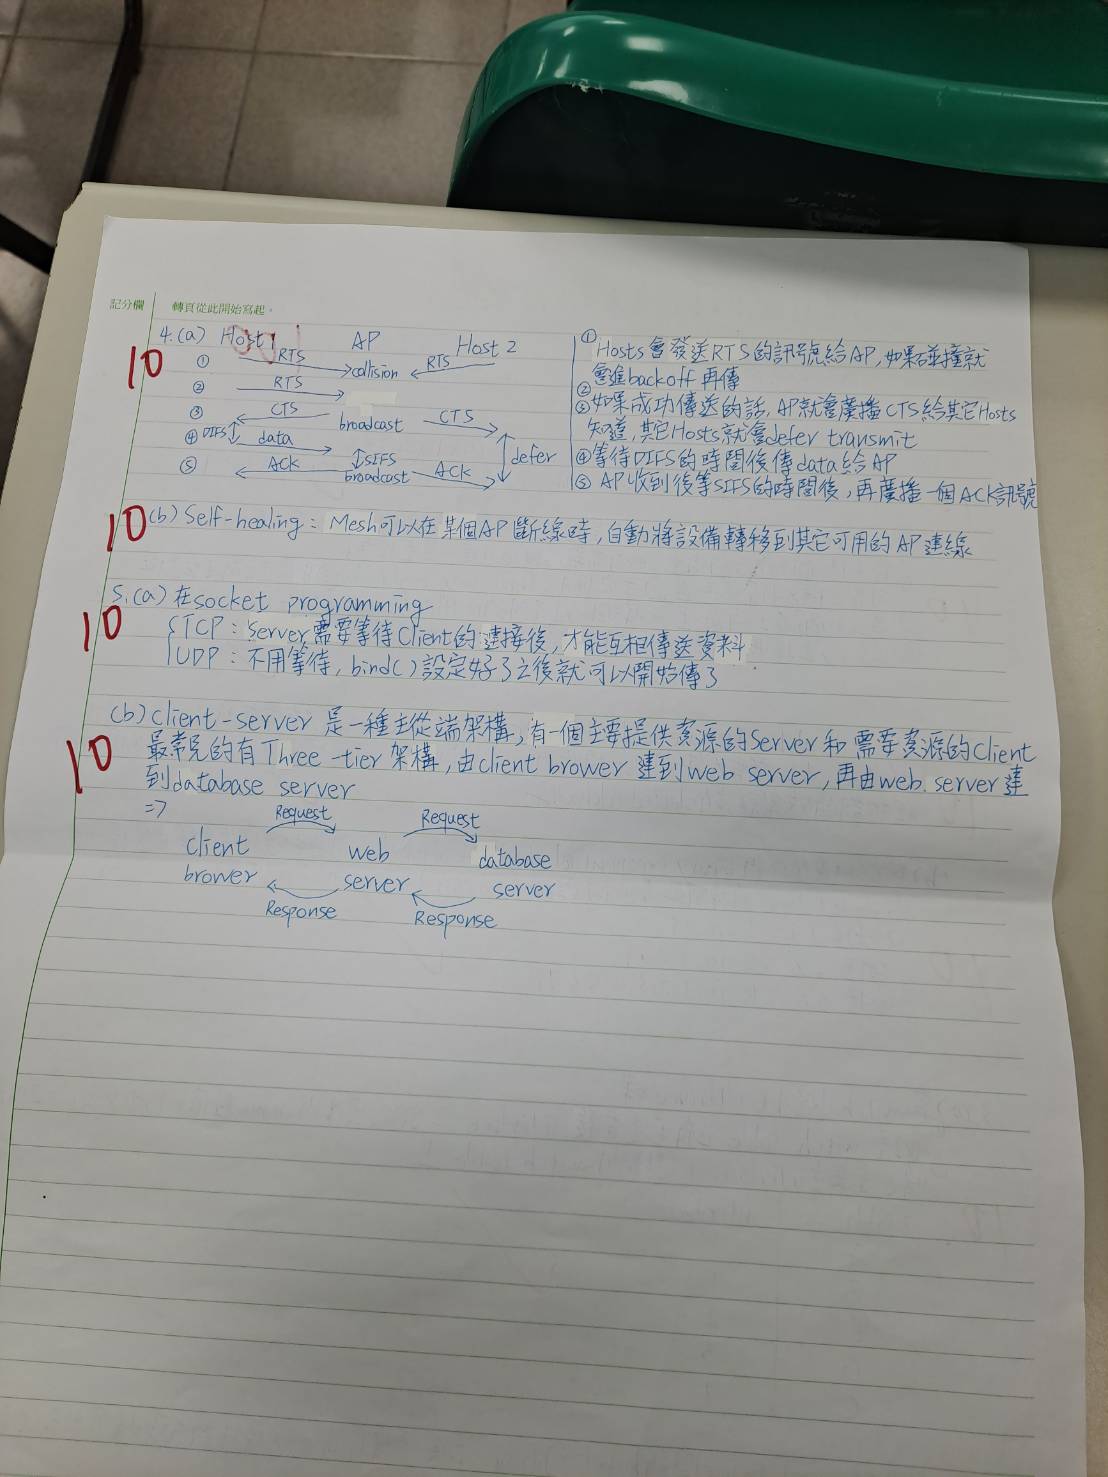 記分欄 轉頁從此開始寫起。
4.(a) Host1 AP Host 2
10
① RTS collision RTS
② RTS
③ CTS broadcast CTS
④ DIFS data defer
⑤ ACK SIFS broadcast ACK
①Hosts會發送RTS的訊號給AP,如果碰撞就
會進backoff再傳
②
③如果成功傳送的話,AP就會廣播CTS給其它Hosts
知道,其它Hosts就會defer transmit
④等待DIFS的時間後傳data給AP
⑤AP收到後等SIFS的時間後,再廣播一個ACK訊號
10
(b) Self-healing:Mesh可以在某個AP斷線時,自動將設備轉移到其它可用的AP連線
5.(a)在socket programming
10
TCP:Server需要等待Client的連接後,才能互相傳送資料
UDP:不用等待,bind()設定好了之後就可以開始傳了
(b) client-server是一種主從端架構,有一個主要提供資源的Server和需要資源的Client
10
最常見的有Three-tier架構,由client brower連到web server,再由web server連
到database server
⇒ Request Request
client web database
brower server server
Response Response